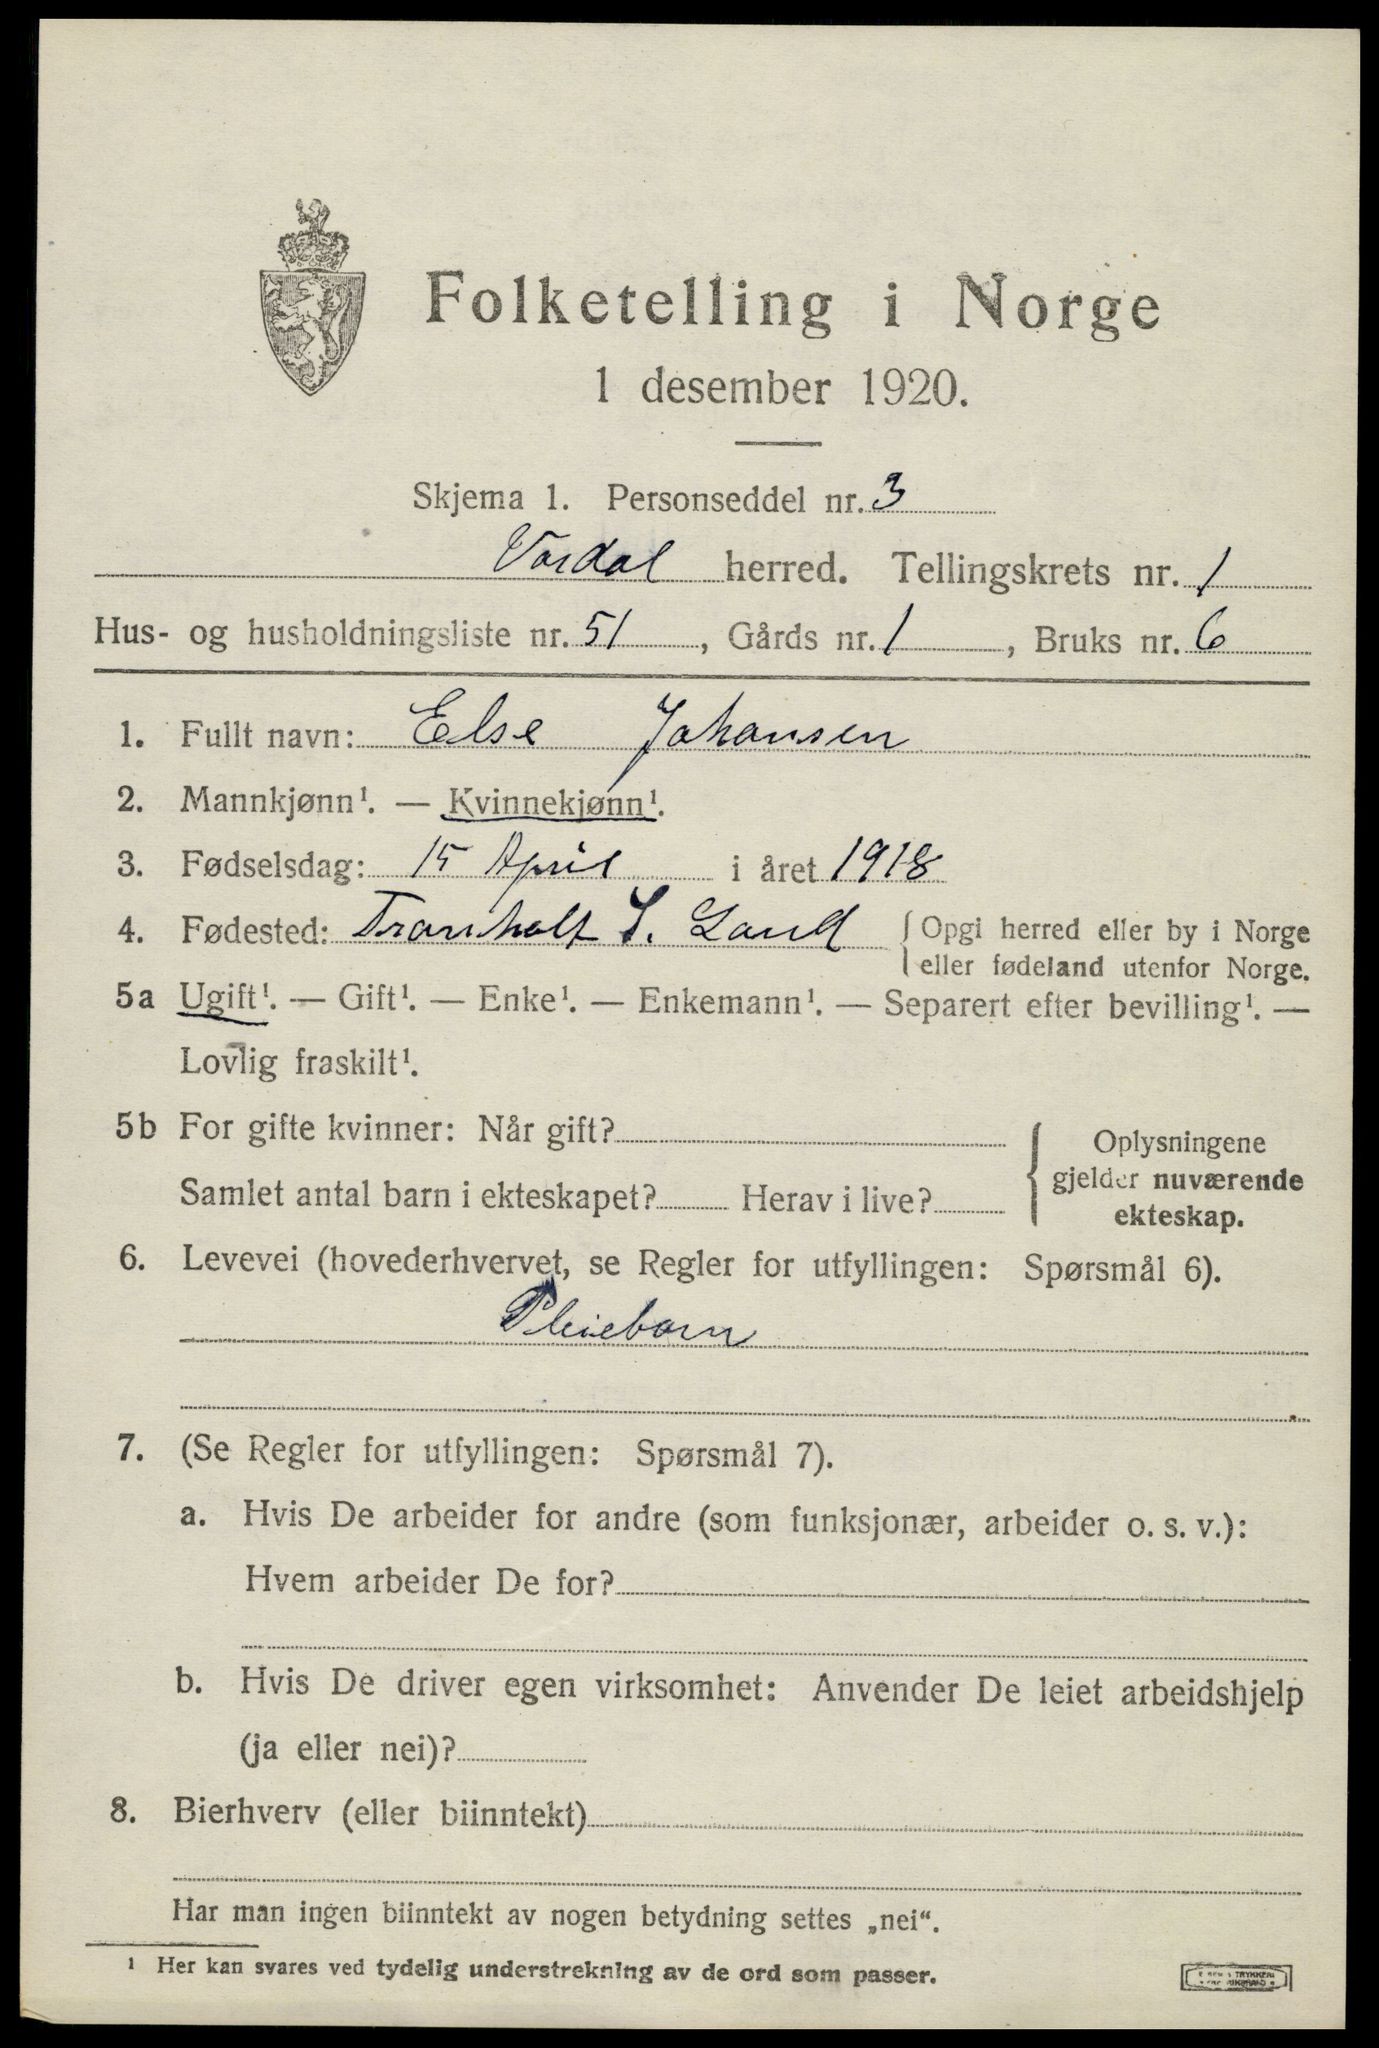 Folketelling i Norge
1 desember 1920.
Skjema 1. Personseddel nr. 3
Vardal herred. Tellingskrets nr. 1
Hus- og husholdningsliste nr. 51, Gårds nr. 1, Bruks nr. 6
1. Fullt navn: Else Johansen
2. Mannkjønn¹. — Kvinnekjønn¹.
3. Fødselsdag: 15 April i året 1918
4. Fødested: Tranholt S. Land { Opgi herred eller by i Norge
eller fødeland utenfor Norge.
5a Ugift¹. — Gift¹. — Enke¹. — Enkemann¹. — Separert efter bevilling¹. —
Lovlig fraskilt¹.
5b For gifte kvinner: Når gift?
Samlet antal barn i ekteskapet? Herav i live?
{ Oplysningene
gjelder nuværende
ekteskap.
6. Levevei (hovederhvervet, se Regler for utfyllingen: Spørsmål 6).
Pleiebarn
7. (Se Regler for utfyllingen: Spørsmål 7).
a. Hvis De arbeider for andre (som funksjonær, arbeider o. s. v.):
Hvem arbeider De for?
b. Hvis De driver egen virksomhet: Anvender De leiet arbeidshjelp
(ja eller nei)?
8. Bierhverv (eller biinntekt)
Har man ingen biinntekt av nogen betydning settes „nei“.
¹ Her kan svares ved tydelig understrekning av de ord som passer.